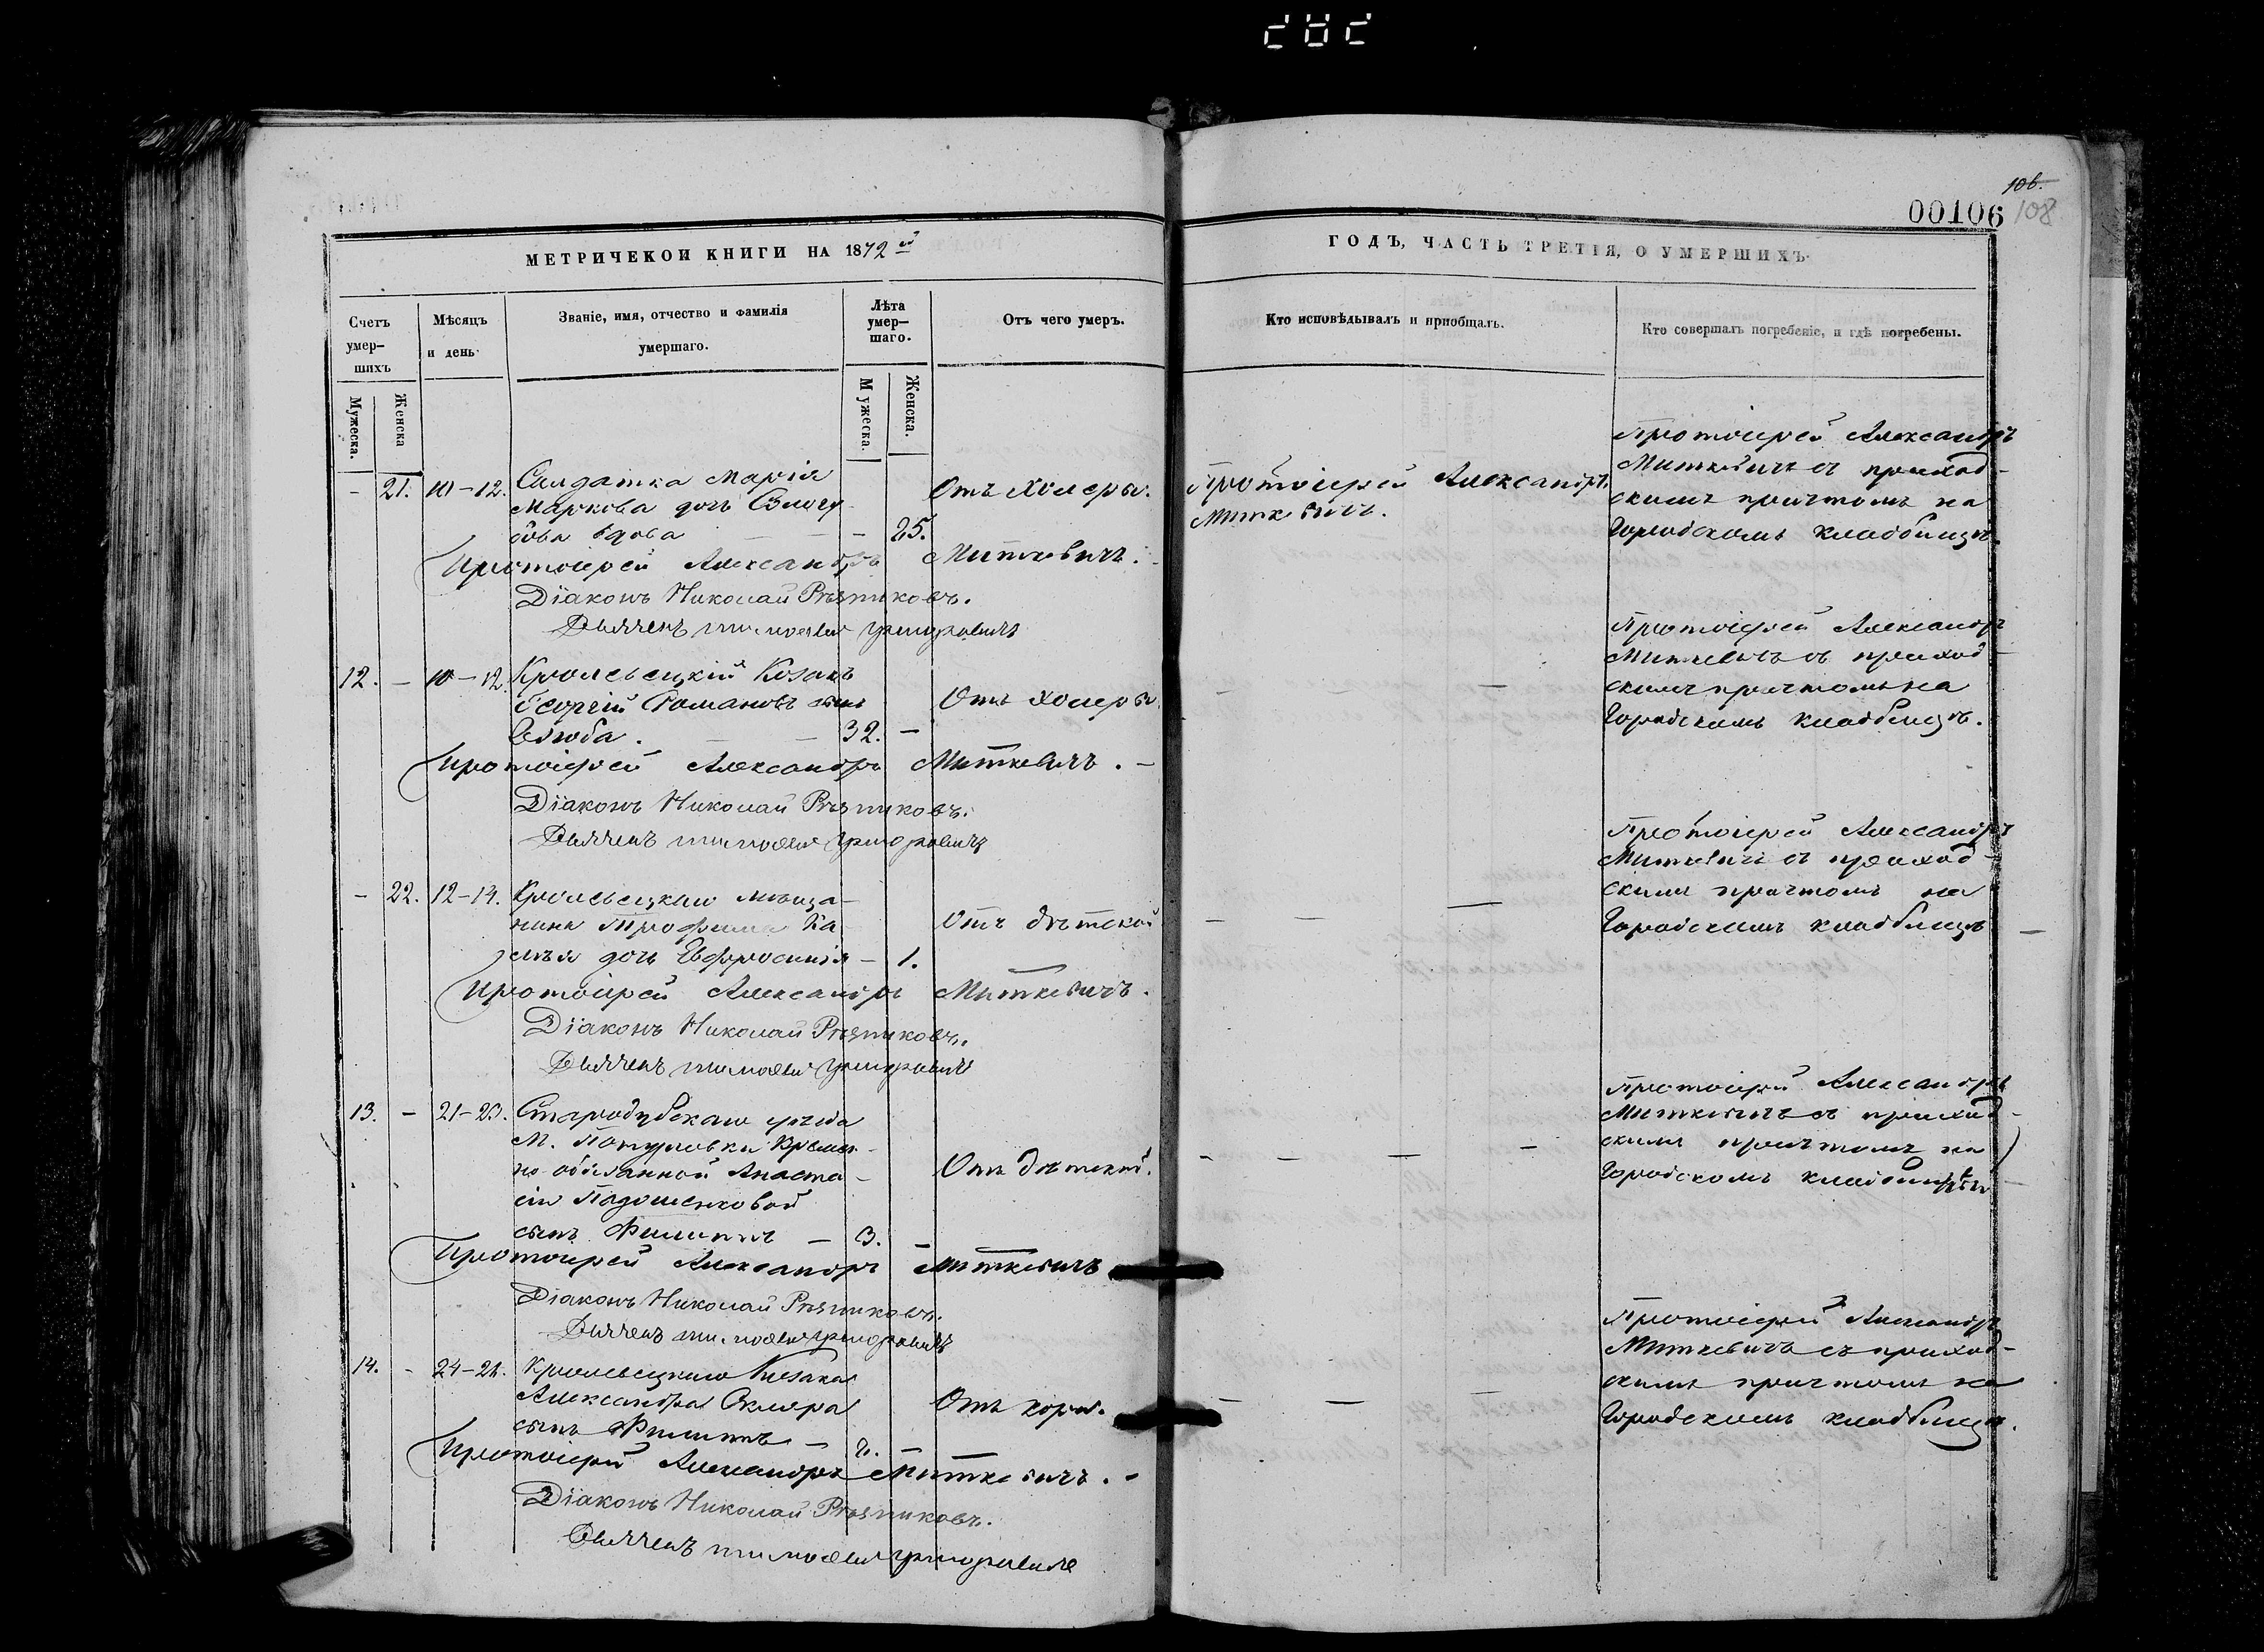 106.
00106 108
МЕТРИЧЕКОЙ КНИГИ НА 1872 й
ГОДЪ, ЧАСТЬ ТРЕТІЯ, О УМЕРШИХЪ.
Счетъ умер-шихъ
Мужеска.
Женска
Мѣсяцъ и день.
Званіе, имя, отчество и фамилія умершаго.
Лѣта умер-шаго.
Мужеска.
Женска.
Отъ чего умеръ.
Кто исповѣдывалъ и пріобщалъ.
Кто совершалъ погребеніе, и гдѣ погребены.
- 21. 10-12. Салдатка Марія
Маркова дочь
вдова - 25.
Отъ холеры.
Протоіерей Александръ
Миткевичъ.
Протоіерей Александръ
Миткевичъ съ приход-
скимъ причтомъ на
Городскомъ кладбищѣ.
Протоіерей Александръ Миткевичъ.
Діаконъ Николай Рѣзниковъ.
Дьячекъ Тимофей Григоровичъ
12. - 10-12. Кролевецкій Козакъ
Георгій Романовъ сынъ
32. -
Отъ холеры
Протоіерей Александръ
Миткевичъ съ приход-
скимъ причтомъ на
Городскомъ кладбищѣ.
Протоіерей Александръ Миткевичъ. -
Діаконъ Николай Рѣзниковъ.
Дьячекъ Тимофей Григоровичъ
- 22. 12-14. Кролевецкаго мѣща-
нина Трофима
дочь Евфросинія - 1.
Отъ дѣтской
Протоіерей Александръ
Миткевичъ съ приход-
скимъ причтомъ на
Городскомъ кладбищѣ
Протоіерей Александръ Миткевичъ.
Діаконъ Николай Рѣзниковъ.
Дьячекъ Тимофей Григоровичъ
13. - 21-23. Стародубскаго уѣзда
М. Понуровки Времен-
но-обязанной Анаста-
сіи
сынъ Филиппъ - 3.
Отъ дѣтской.
Протоіерей Александръ
Миткевичъ съ приход-
скимъ причтомъ на
Городскомъ кладбищѣ
Протоіерей Александръ Миткевичъ
Діаконъ Николай Рѣзниковъ.
Дьячекъ Тимофей Григоровичъ
14. - 24-26. Кролевецкаго Козака
Александра Скляра
сынъ Филиппъ - 2.
Отъ кори.
Протоіерей Александръ
Миткевичъ съ приход-
скимъ причтомъ на
Городскомъ кладбищѣ.
Протоіерей Александръ Миткевичъ. -
Діаконъ Николай Рѣзниковъ.
Дьячекъ Тимофей Григоровичъ